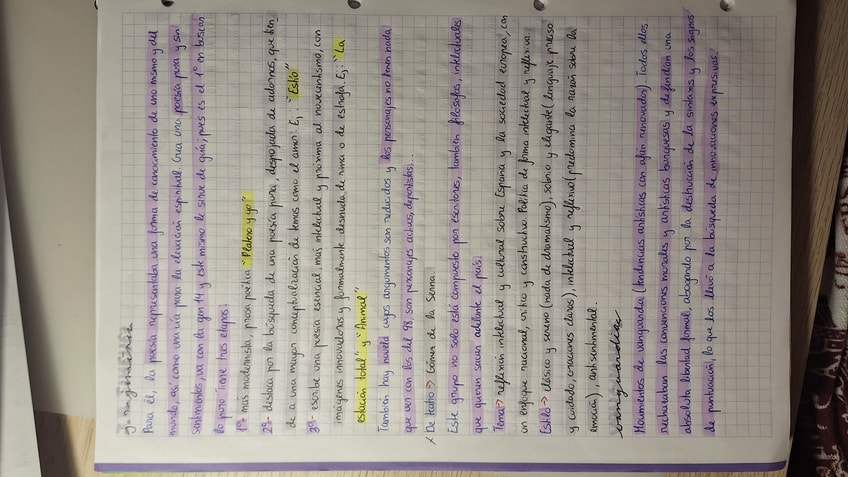 j.r. jiménez
Para él, la poesía representaba una forma de conocimiento de uno mismo y del
mundo, así como una vía para la elevación espiritual. Crea una poesía pura y sin
sentimientos, va con la gen 14 y este mismo le sirve de guía, pues es el 1º en buscar
lo puro. Tiene tres etapas:
1ª- más modernista, prosa poética "Platero y yo"
2ª- destaca por la búsqueda de una poesía pura, despojada de adornos, que tien-
de a una mayor conceptualización de temas como el amor. Ej: "Estío"
3ª- escribe una poesía esencial, más intelectual y próxima al novecentismo, con
imágenes innovadoras y formalmente desnuda de rima o de estrofa. Ej: "La
estación total" y "Animal"
También hay novela cuyos argumentos son reducidos y los personajes no tienen nada
que ver con los del 98, son personajes activos, deportistas...
De teatro → Gómez de la Serna.
Este grupo no solo está compuesto por escritores, también filósofos, intelectuales
que quieran sacar adelante el país.
Tema → reflexión intelectual y cultural sobre España y la sociedad europea, con
un enfoque nacional, crítico y constructivo. Política de forma intelectual y reflexiva.
Estilo → clásico y sereno (nada de dramatismo), sobrio y elegante (lenguaje preciso
y cuidado, oraciones claras), intelectual y reflexivo (predomina la razón sobre la
emoción), antisentimental.
vanguardias
Movimientos de vanguardia (tendencias artísticas con afán renovador). Todos ellos
rechazaban las convenciones morales y artísticas burguesas y defendían una
absoluta libertad formal, abogando por la destrucción de la sintaxis y los signos
de puntuación, lo que los llevó a la búsqueda de innovaciones expresivas.